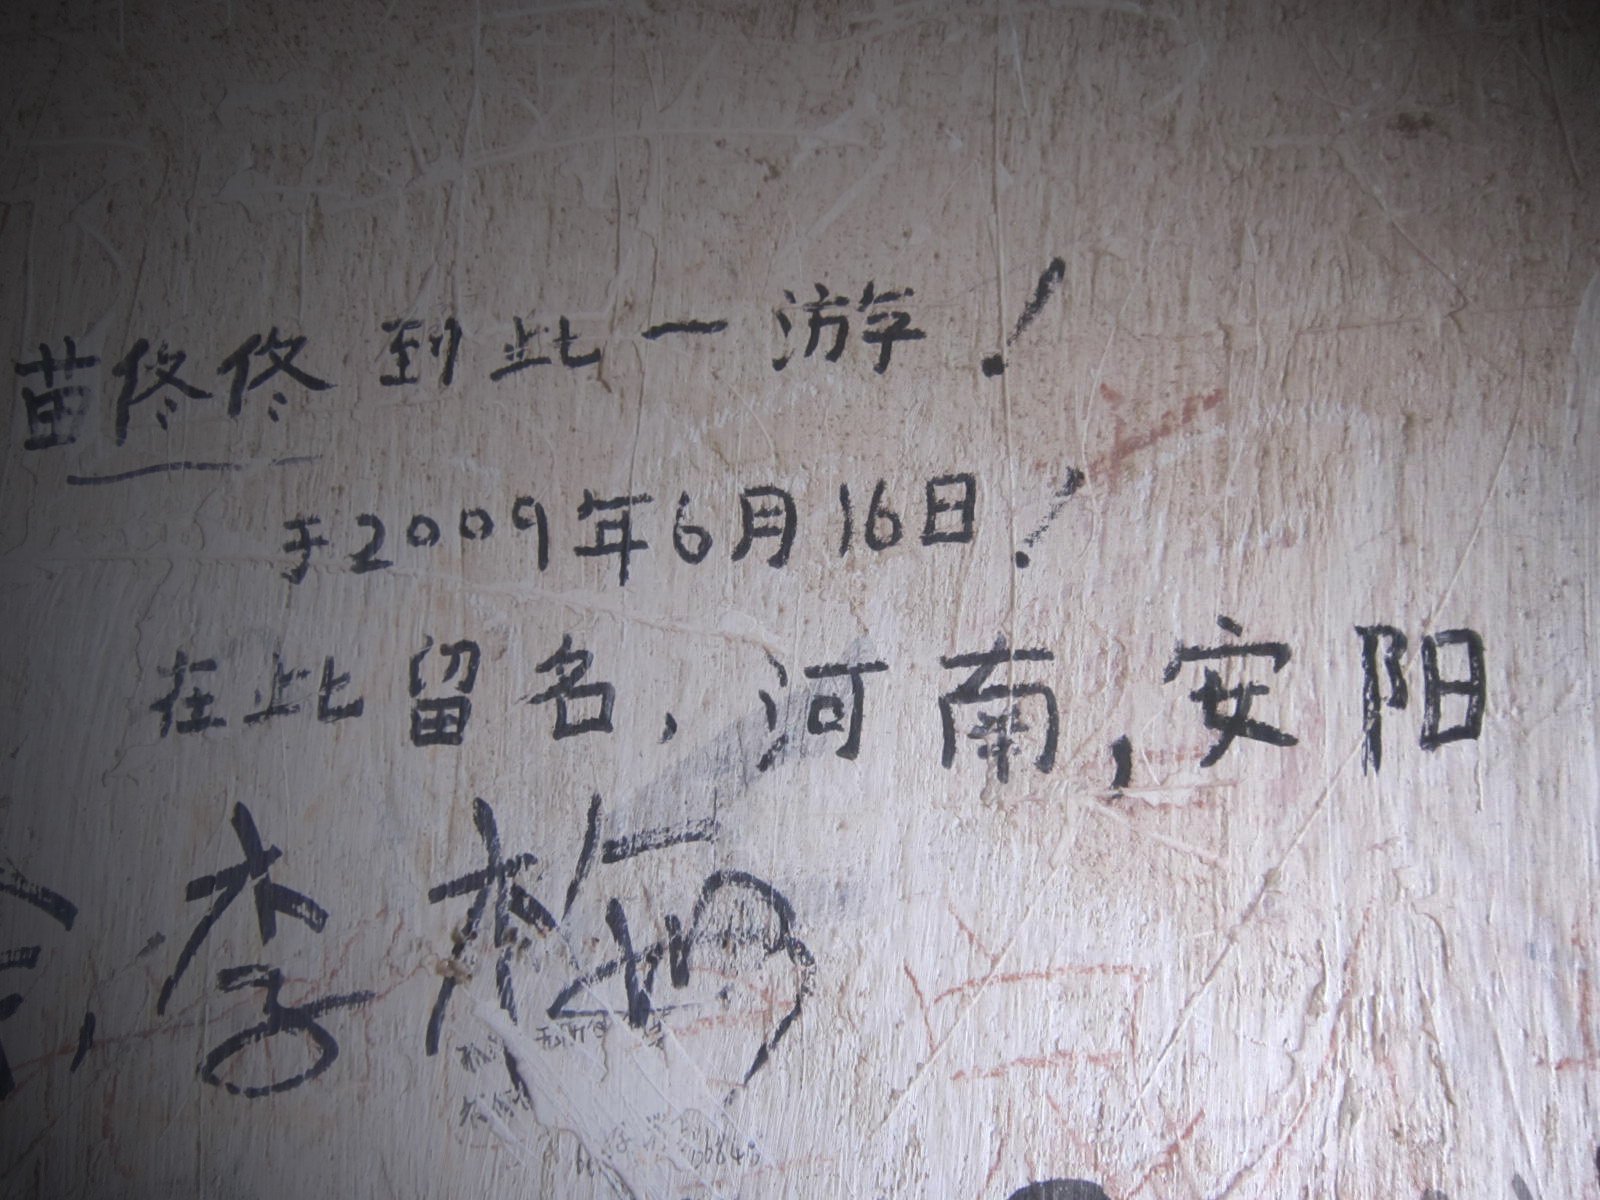 苗佟佟到此一游!
于2009年6月16日!
在此留名,河南,安阳
李梅